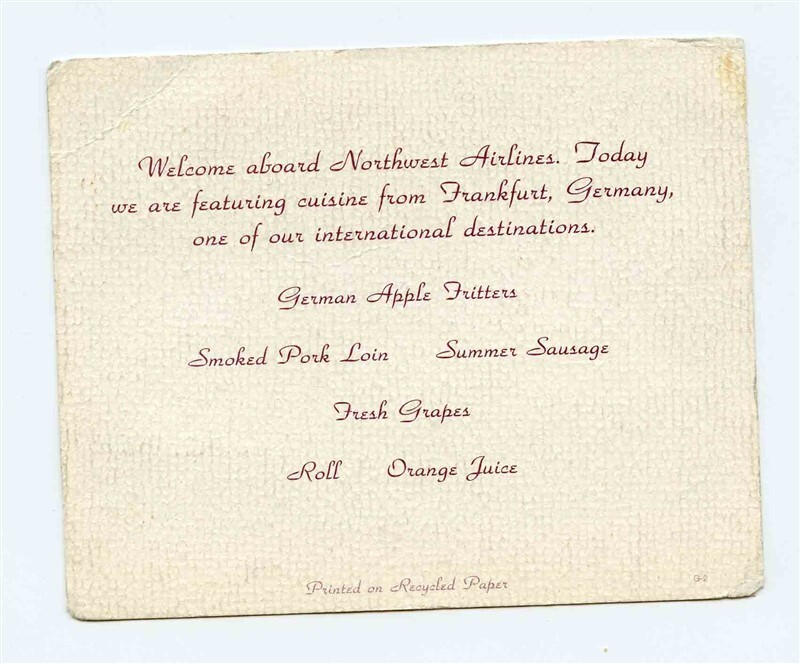 Welcome aboard Northwest Airlines. Today
we are featuring cuisine from Frankfurt, Germany,
one of our international destinations.
German Apple Fritters
Smoked Pork Loin Summer Sausage
Fresh Grapes
Roll Orange Juice
Printed on Recycled Paper G-2